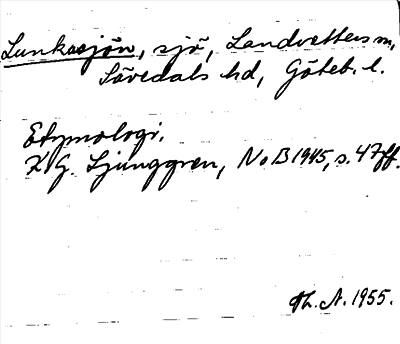 Lunkasjön, sjö, Landvetters sn,
Sävedals hd, Göteb. l.
Etymologi.
K G. Ljunggren, NoB 1945, s. 47 ff.
Th. A. 1955.